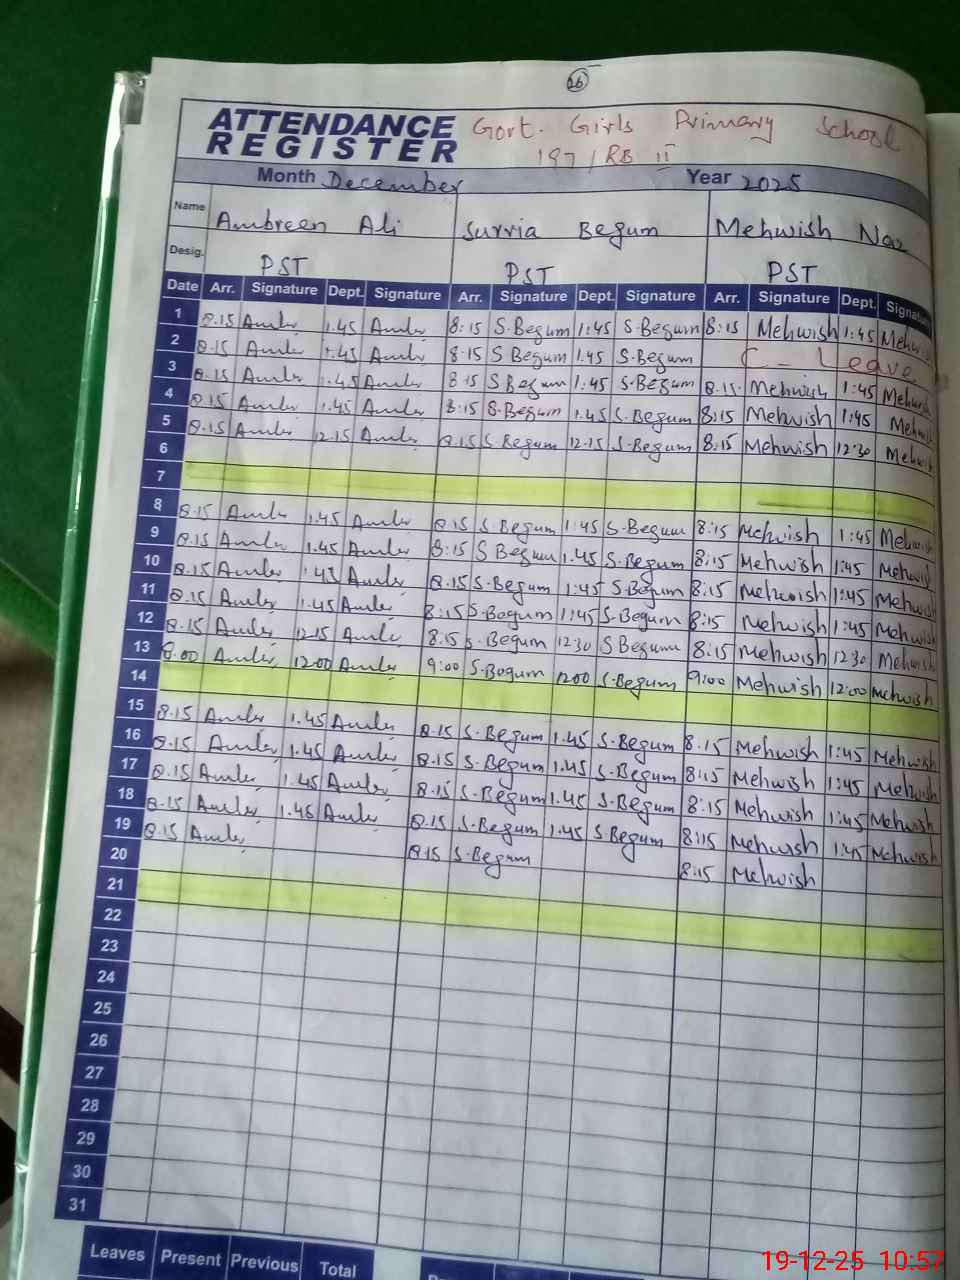 26
ATTENDANCE REGISTER Govt. Girls Primary School
197/RB II
Month December Year 2025
Name Ambreen Ali Surria Begum Mehwish Naz
Desig. PST PST PST
Date Arr. Signature Dept. Signature Arr. Signature Dept. Signature Arr. Signature Dept. Signature
1 8.15 Amber 1.45 Amber 8:15 S.Begum 1:45 S.Begum 8:15 Mehwish 1:45 Mehwish
2 8.15 Amber 1.45 Amber 8.15 S Begum 1.45 S.Begum C - Leave
3 8.15 Amber 1.45 Amber 8.15 S Begum 1:45 S.Begum 8.15 Mehwish 1:45 Mehwish
4 8.15 Amber 1.45 Amber 8:15 S.Begum 1.45 S.Begum 8:15 Mehwish 1:45 Mehwish
5 8.15 Amber 12.15 Amber 8.15 S.Begum 12.15 S.Begum 8:15 Mehwish 12:30 Mehwish
6
7
8 8.15 Amber 1.45 Amber 8.15 S.Begum 1:45 S.Begum 8:15 Mehwish 1:45 Mehwish
9 8.15 Amber 1.45 Amber 8:15 S Begum 1.45 S.Begum 8:15 Mehwish 1:45 Mehwish
10 8.15 Amber 1.45 Amber 8.15 S.Begum 1:45 S.Begum 8:15 Mehwish 1:45 Mehwish
11 8.15 Amber 1.45 Amber 8:15 S.Begum 1:45 S.Begum 8:15 Mehwish 1:45 Mehwish
12 8.15 Amber 12.15 Amber 8:15 S.Begum 12:30 S Begum 8:15 Mehwish 12:30 Mehwish
13 8.00 Amber 12.00 Amber 9:00 S.Begum 12.00 S.Begum 9:00 Mehwish 12:00 Mehwish
14
15 8.15 Amber 1.45 Amber 8.15 S.Begum 1.45 S.Begum 8.15 Mehwish 1:45 Mehwish
16 8.15 Amber 1.45 Amber 8.15 S.Begum 1.45 S.Begum 8:15 Mehwish 1:45 Mehwish
17 8.15 Amber 1.45 Amber 8.15 S.Begum 1.45 S.Begum 8:15 Mehwish 1:45 Mehwish
18 8.15 Amber 1.45 Amber 8.15 S.Begum 1.45 S.Begum 8:15 Mehwish 1:45 Mehwish
19 8.15 Amber 8.15 S.Begum 8:15 Mehwish
20
21
22
23
24
25
26
27
28
29
30
31
Leaves Present Previous Total
19-12-25 10:57